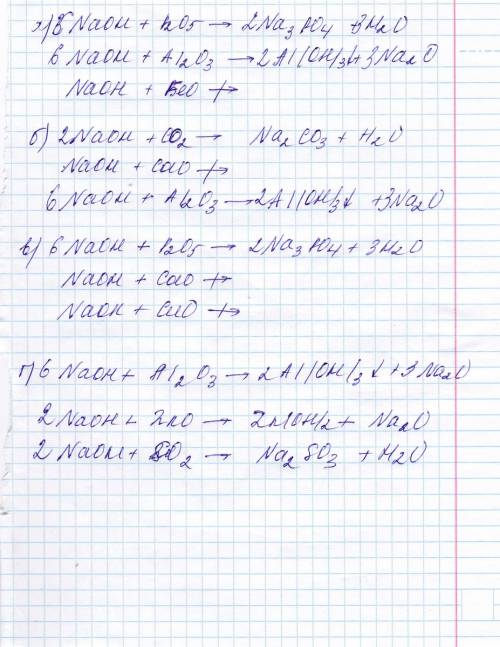 а) 6 NaOH + P2O5 → 2Na3PO4 3H2O
6 NaOH + Al2O3 → 2Al(OH)3↓ + 3Na2O
NaOH + BeO ↛
б) 2NaOH + CO2 → Na2CO3 + H2O
NaOH + CaO ↛
6 NaOH + Al2O3 → 2Al(OH)3↓ + 3Na2O
в) 6 NaOH + P2O5 → 2Na3PO4 + 3H2O
NaOH + CaO ↛
NaOH + CuO ↛
г) 6 NaOH + Al2O3 → 2Al(OH)3↓ + 3Na2O
2 NaOH + ZnO → Zn(OH)2 + Na2O
2 NaOH + SO2 → Na2SO3 + H2O